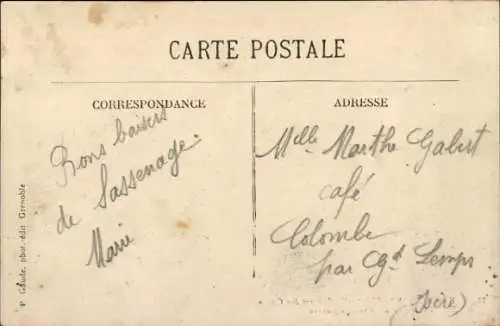 CARTE POSTALE
CORRESPONDANCE
ADRESSE
Bons baisers
de Sassenage.
Marie
Melle Marthe Gabert
café
Colombe
par Gd Lemps
(Isère)
phot. édit Grenoble